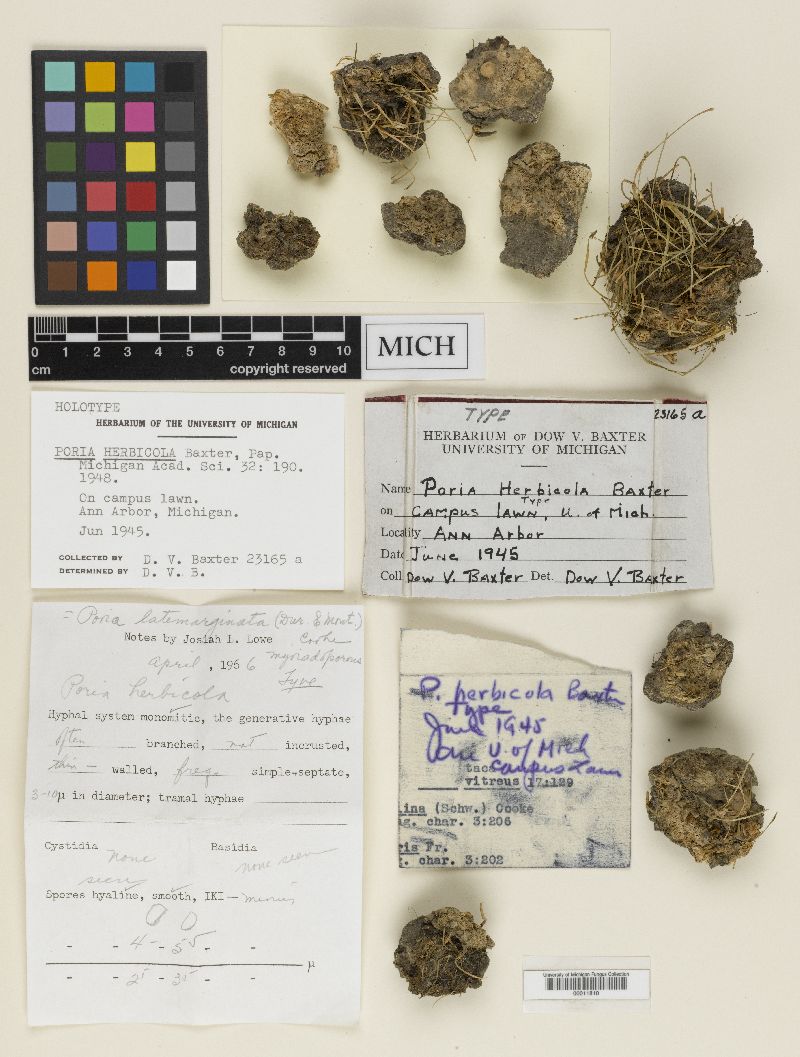 0 1 2 3 4 5 6 7 8 9 10
cm
copyright reserved
MICH
HOLOTYPE
HERBARIUM OF THE UNIVERSITY OF MICHIGAN
PORIA HERBICOLA Baxter, Pap.
Michigan Acad. Sci. 32: 190.
1948.
On campus lawn.
Ann Arbor, Michigan.
Jun 1945.
COLLECTED BY D. V. Baxter 23165 a
DETERMINED BY D. V. B.
TYPE
23165 a
HERBARIUM OF DOW V. BAXTER
UNIVERSITY OF MICHIGAN
Name Poria Herbicola Baxter
Type
on Campus lawn, U. of Mich.
Locality Ann Arbor
Date June 1945
Coll Dow V. Baxter Det. Dow V. Baxter
= Poria latemarginata (Dur. & Mont.)
Cooke
Notes by Josiah L. Lowe
April, 1966
Type
Poria herbicola
Hyphal system monomitic, the generative hyphae
often branched, not incrusted,
thin- walled, freq. simple-septate,
3-10µ in diameter; tramal hyphae
Cystidia none seen
Basidia none seen
Spores hyaline, smooth, IKI - minus
- - 4 - 55 - -
µ
- - 25 - 35 - -
P. herbicola Baxter
Type
June 1945
U. of Mich
Campus Lawn
vitreus (17:129
lina (Schw.) Cooke
g. char. 3:206
ris Fr.
. char. 3:202
University of Michigan Fungus Collection